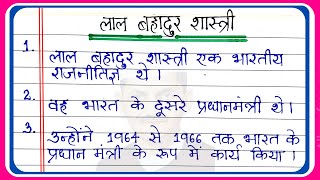 लाल बहादुर शास्त्री
1. लाल बहादुर शास्त्री एक भारतीय
राजनीतिज्ञ थे।
2. वह भारत के दूसरे प्रधानमंत्री थे।
3. उन्होंने 1964 से 1966 तक भारत के
प्रधान मंत्री के रूप में कार्य किया।